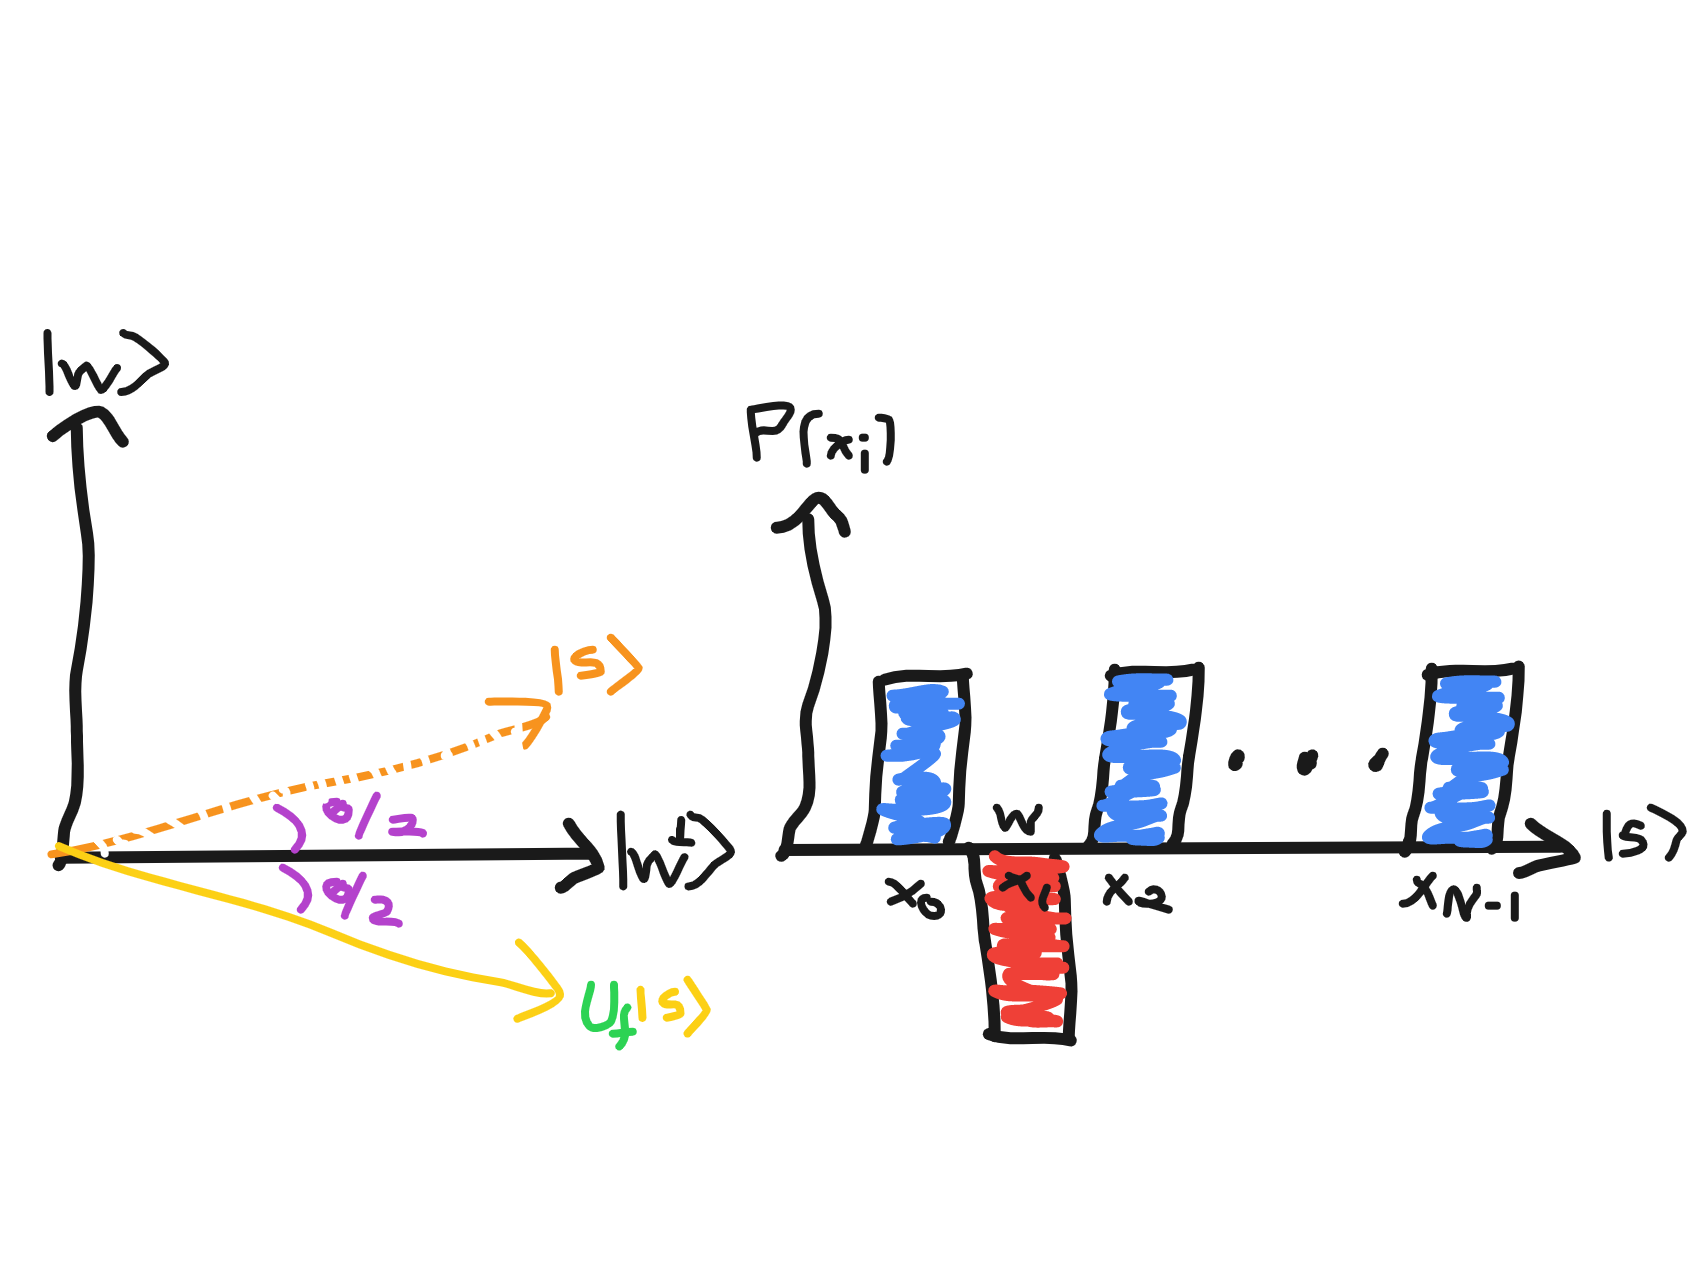 |w⟩
|s⟩
θ/2
|w⊥⟩
θ/2
U_f|s⟩
P(x_i)
w
|s⟩
x_0
x_1
x_2
...
x_N-1